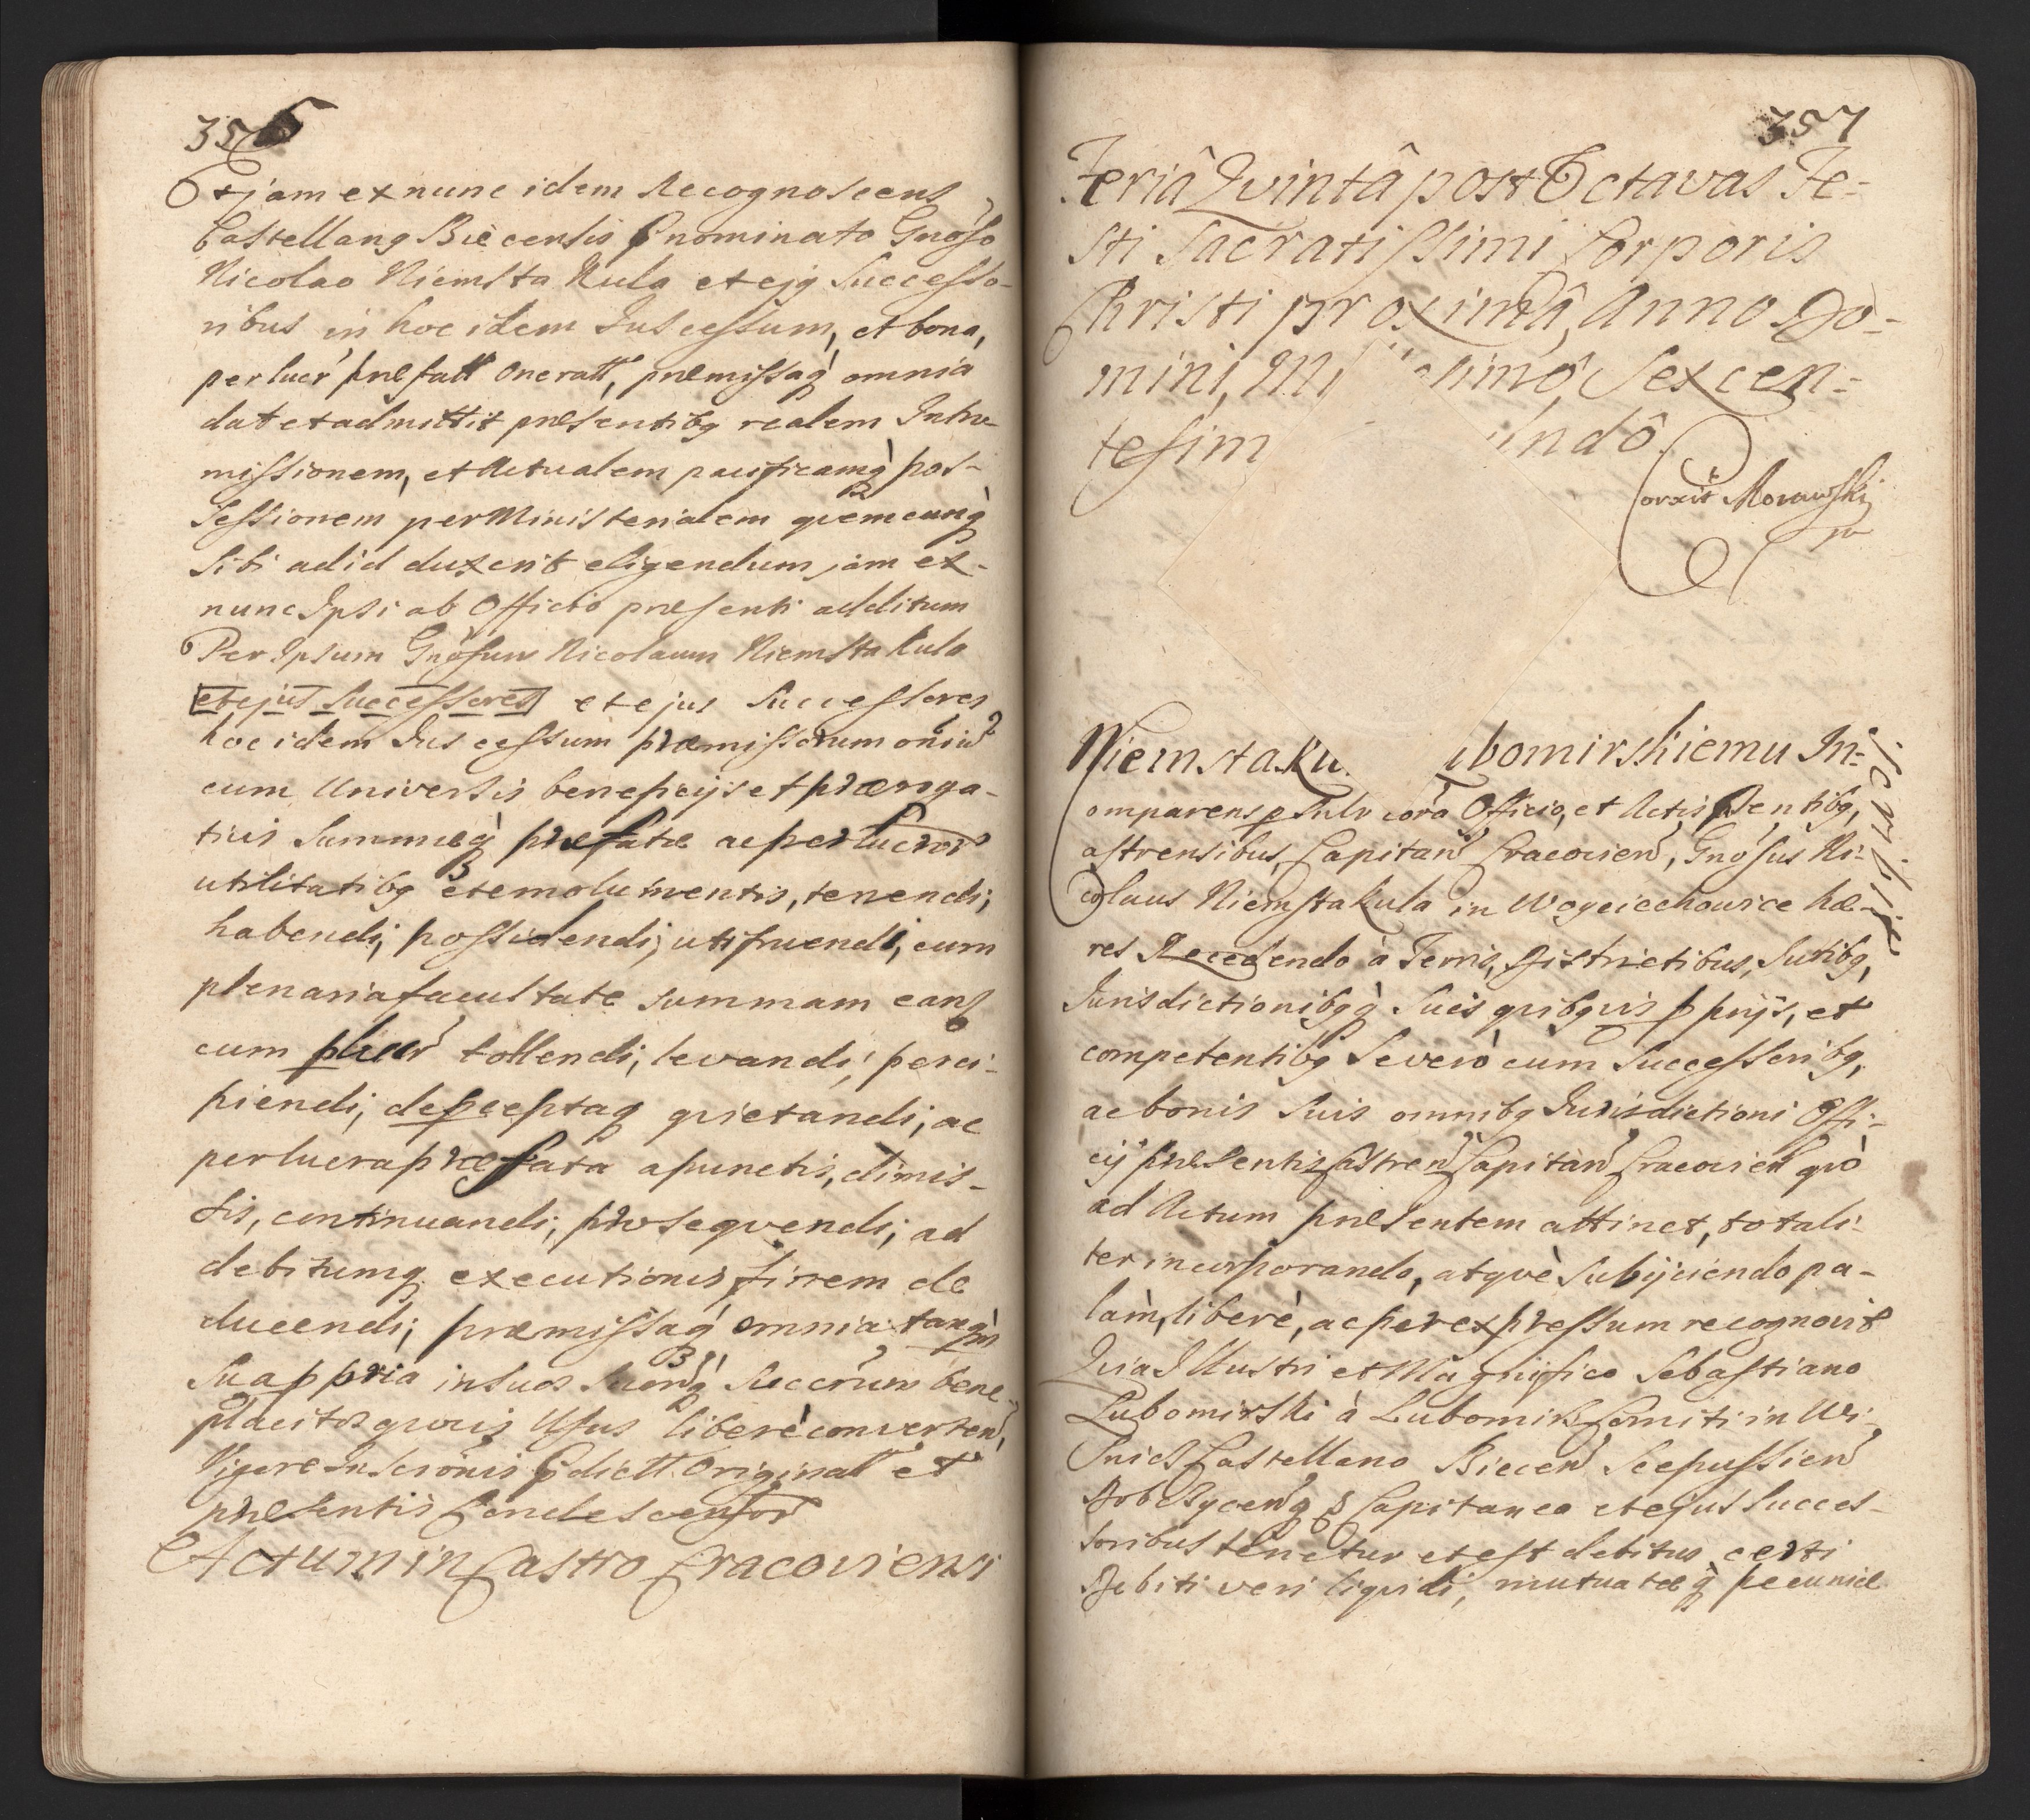 356
Et jam ex nunc idem Recognoscens
Castellanq Biecensis pnominato Gnoso
Nicolao Niemsta Kula et ejq Successo-
ribus in hoc idem Jus cessum, et bona,
per lucr præfatt oneratt, præmissaq omnia
dat et admittit præsentibq realem Intro-
missionem, et Actualem pacificamq pos-
sessionem per Ministerialem qvemcunq
sibi ad id duxerit eligendum jam ex-
nunc Ipsi ab Officio præsenti additum
Per Ipsum Gnosum Nicolaum Niemsta Kula
et ejus Successores et ejus Successores
hoc idem Jus cessum præmissorum oniu
cum Universis beneficijs et præroga-
tivis Summæq præfatæ ac per lucror
utilitatibq et emolumentis, tenendi,
habendi, possidendi, utifruendi, cum
plenaria facultate summam eand
cum plucr tollendi, levandi, perci-
piendi, de pceptaq qvietandi, ac
per lucra præfata a punctis, dimis-
sis, continuandi, prosequendi, ad
debitumq executionis finem de
ducendi, præmissaq omnia tanqm
sua ppria in suos suorq Succrum bene-
placitos qvovis Usus liberè converten,
Vigore Inscronis pdictt Originatt et
præsentis Condescensor
Actum in Castro Cracoviensi
357
Feriâ Qvintâ post Octavas Fe=
sti Sacratissimi Corporis
Christi proximâ, Anno Do=
mini, Mi simô Sexcen=
tesim undô
Corxit Morawski
Niemstaku bomirskiemu In=
scribit
Comparens p Sulr cora Officio, et Actis pntibq,
astrensibus, Capitan Cracovien, Gnosus Ni-
colaus Niemsta Kula in Woyciechowice hæ-
res Recedendo à Terris, Districtibus, Sutibq,
Jurisdictionibqq Suis qvibqvis ppriis, et
competentibq Severò cum Successoribq,
ac bonis Suis omnibq Jurisdictioni Offi-
cij præsentis Castren Capitan Cracovien qvò
ad Actum præsentem attinet, totali-
ter incorporando, atqvè Subijciendo pa-
làm, liberè, ac per expressum recognovit
Qvia Illustri et Magnifico Sebastiano
Lubomirski à Lubomirz Comiti in Wi-
snicz Castellano Biecen Scepussien
Dobczycenq & Capitaneo et ejus Succes-
soribus tenetur et est debitus certi
Debiti veri liqvidi, mutuatæq pecuniæ